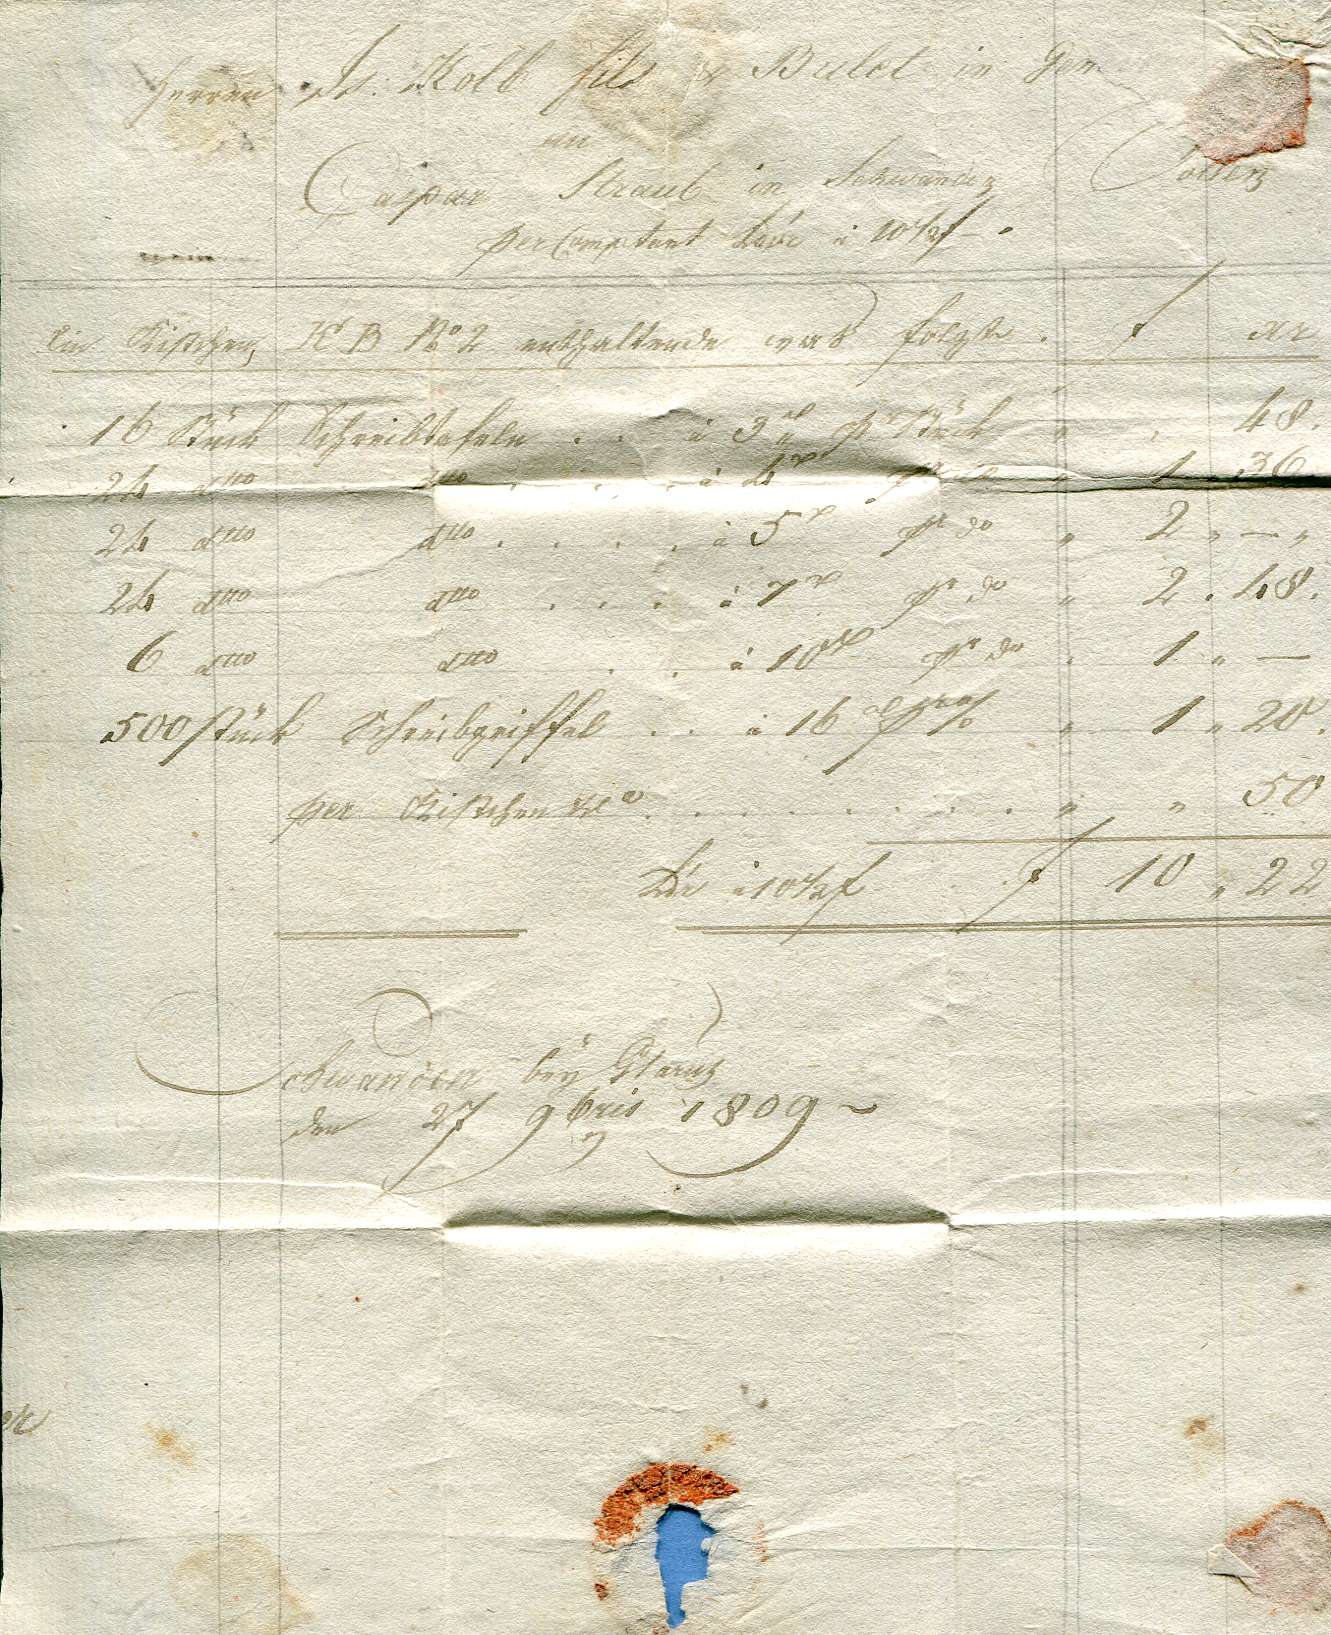 Herren Js. Kolb fils & Bulet in
an
Caspar Straub in Schwanden Sollen
per Comptant L'dor à 10½ f
Ein Kistchen, K B No 2 enthaltende was folgt. f xr
16 Stück Schreibtafeln . . à 3 xr pr Stück " . 48.
24 dtto dtto . . . . à 4 xr pr do " 1 " 36
24 dtto dtto . . . . à 5 xr pr do " 2 " — "
24 dtto dtto . . . à 7 xr pr do " 2 . 48.
6 dtto dtto . . à 10 xr pr do . 1 " —
500 Stück Schreibgriffel . . à 16 xr pr % " 1 " 20.
per Kistchen . . . . . . . . " " 50
L'dr à 10½ f f 10 " 22
Schwanden bey Glarus
den 27 9bris 1809